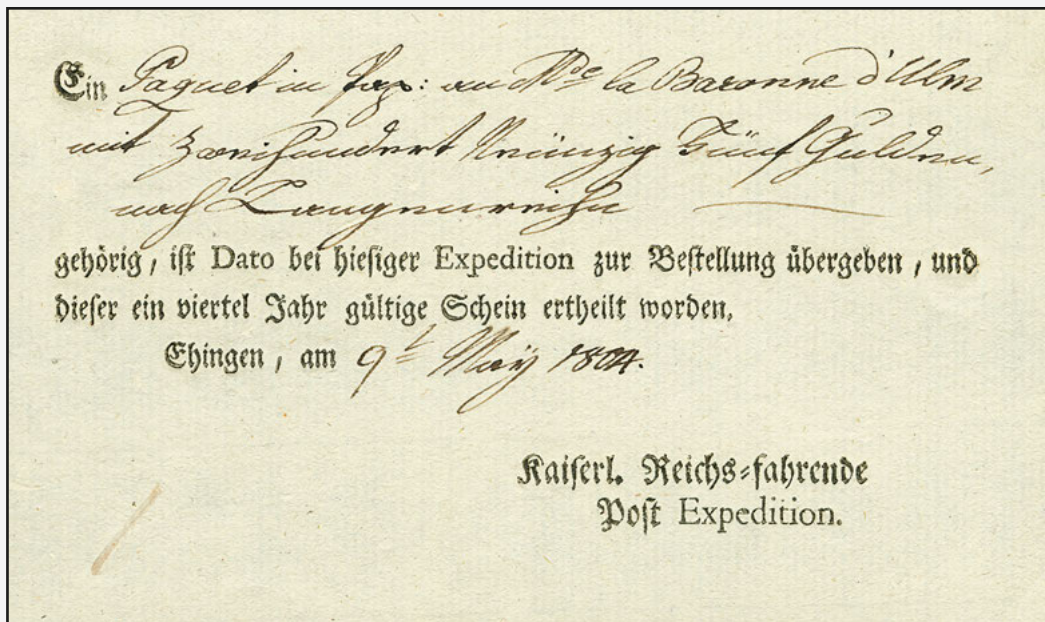 Ein Paquet in Pap: an Mde la Baronne d'Ulm
mit Zweihundert Neünzig Fünf Gulden,
nach Langenreihn
gehörig, ist Dato bei hiesiger Expedition zur Bestellung übergeben, und
dieser ein viertel Jahr gültige Schein ertheilt worden.
Ehingen, am 9t May 1804.
Kaiserl. Reichs-fahrende
Post Expedition.